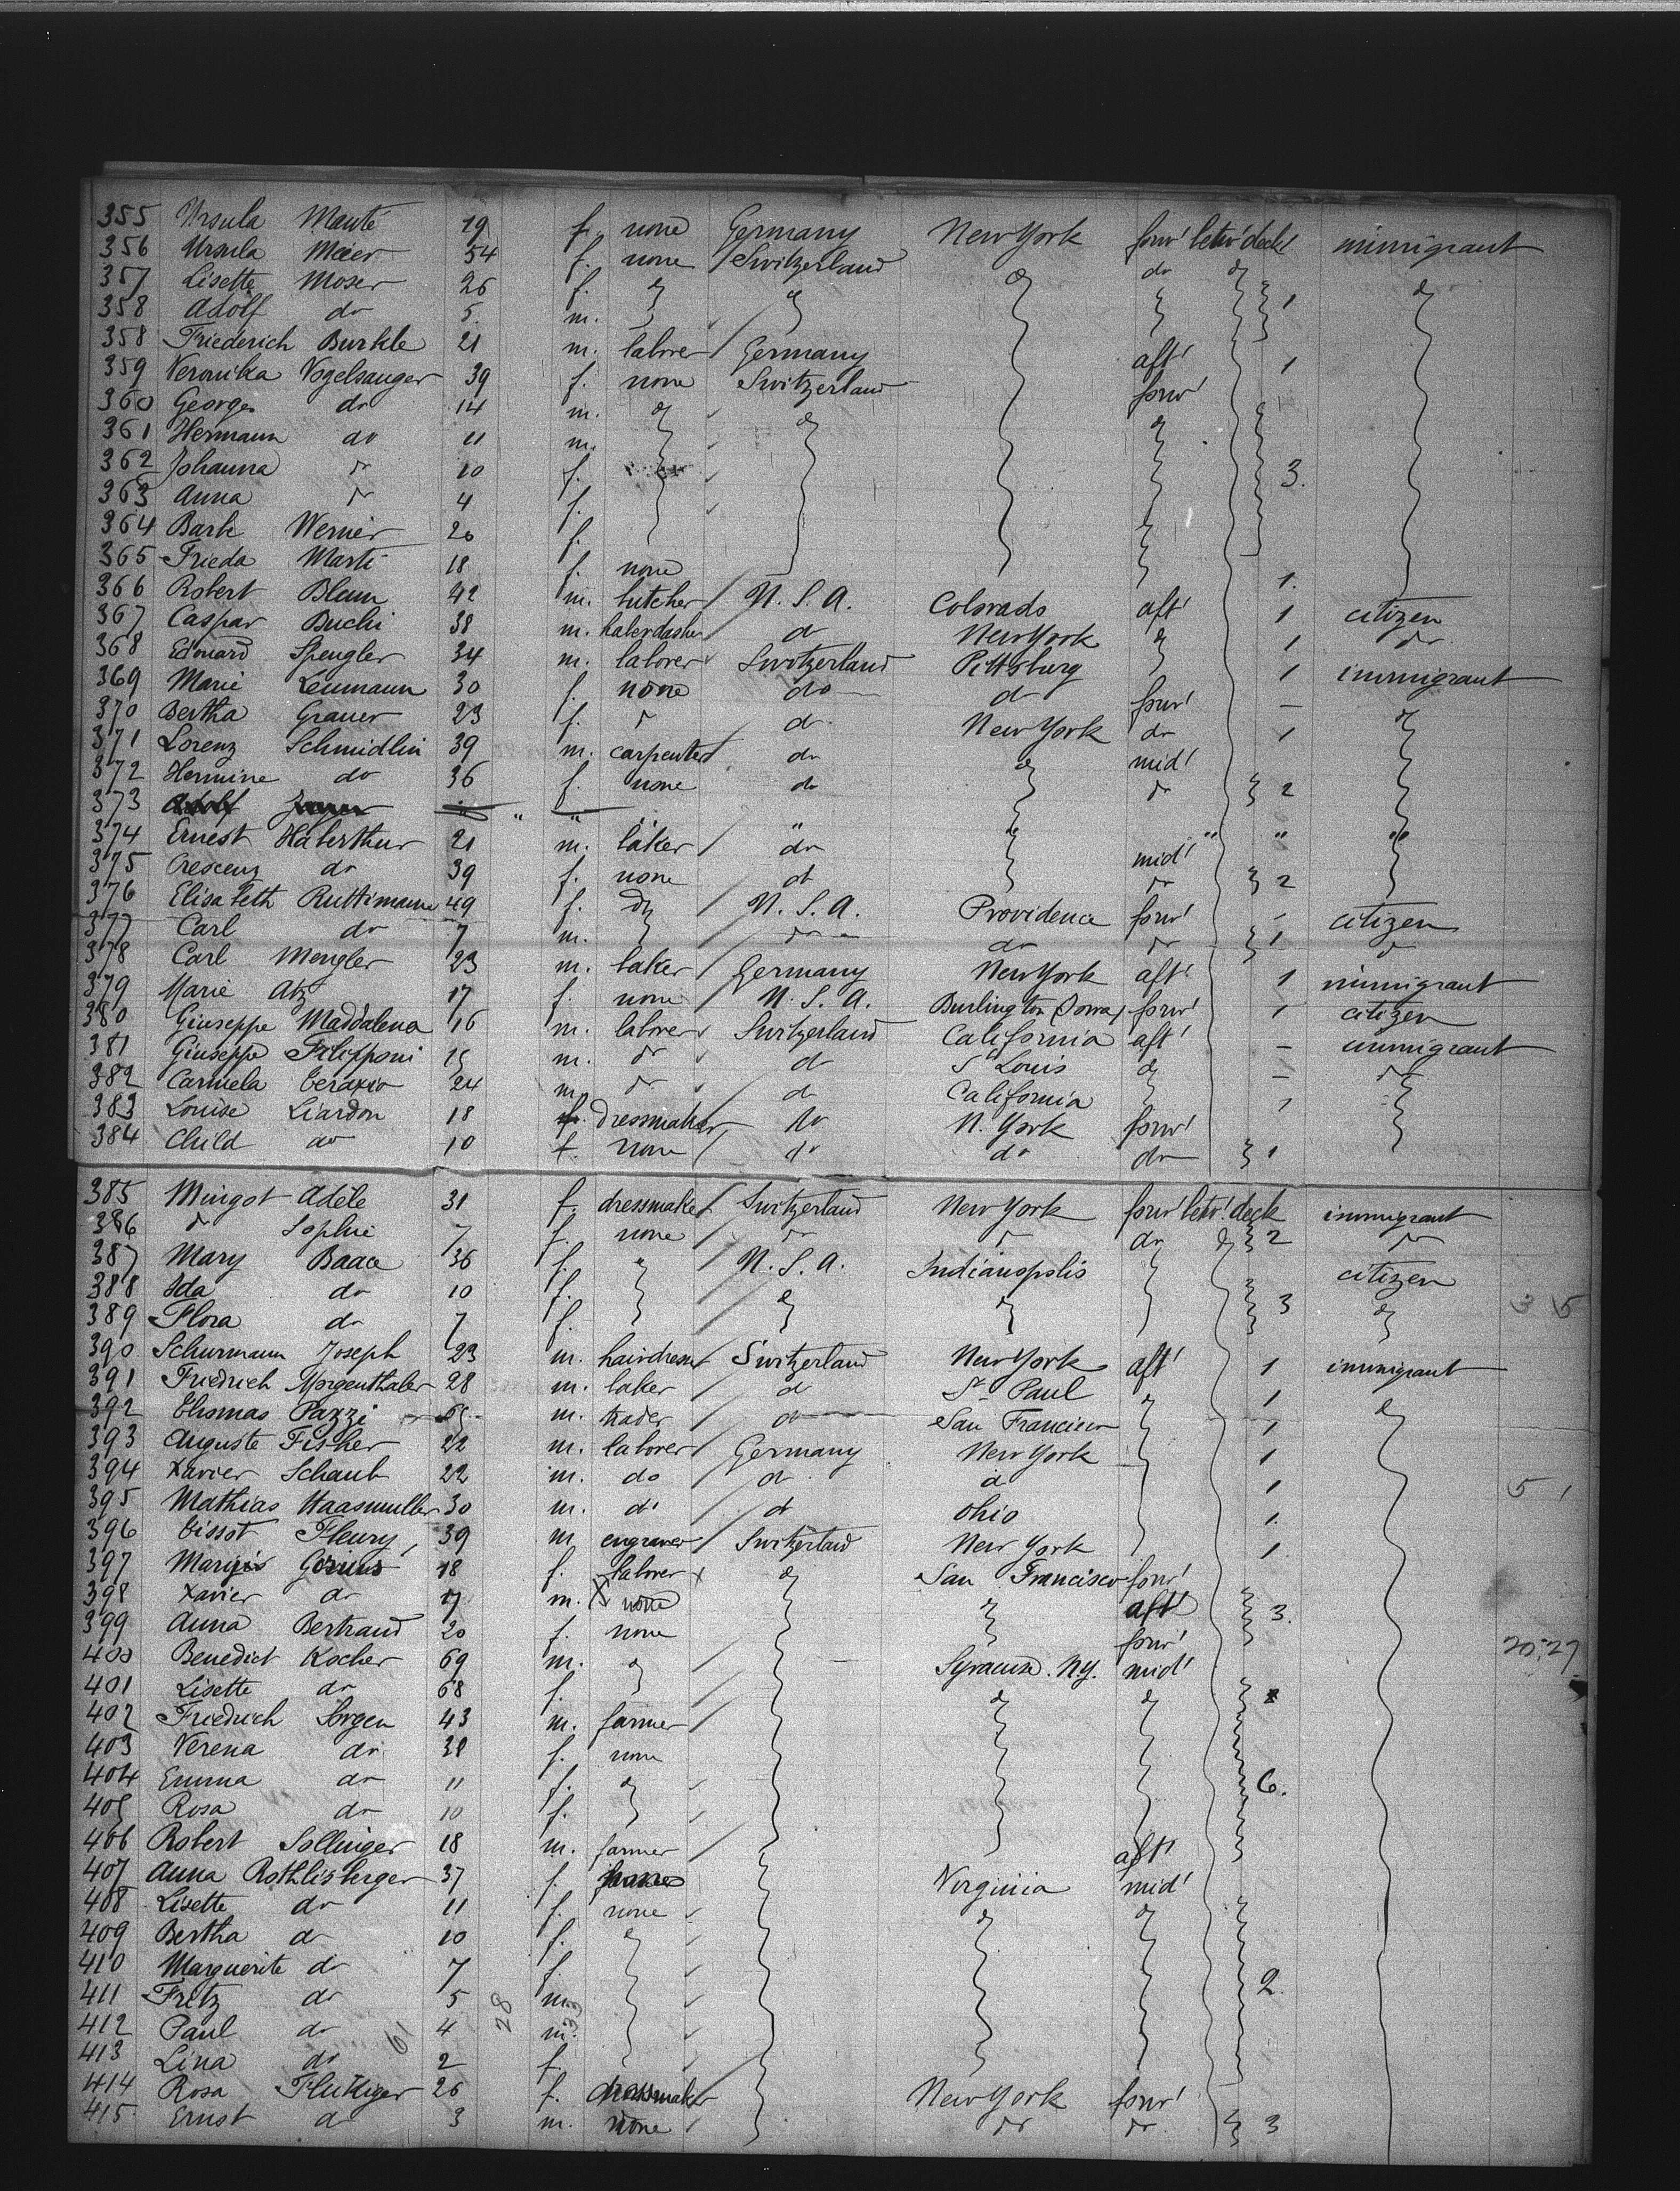 355 Ursula Mauté 19 f. none Germany New York forw' betw' deck' immigrant
356 Ursula Meier 54 f. none Switzerland do
357 Lisette Moser 26 f.
358 Adolf do 5. m. 1
358 Friederich Burkle 21 m. laborer Germany aft' 1
359 Veronika Vogelsanger 39 f. none Switzerland forw'
360 Georges do 14 m.
361 Hermann do 11 m.
362 Johanna do 10 f. 3.
363 Anna do 4 f.
364 Werner 20 f.
365 Frieda Marti 18 f. none 1.
366 Robert Blum 42 m. butcher U. S. A. Colorado aft' 1 citizen
367 Caspar Buchi 38 m. haberdasher do New York 1 do
368 Edouard Spengler 34 m. laborer Switzerland Pittsburg 1 immigrant
369 Marie Leumann 30 f. none do do forw' –
370 Bertha Grauer 23 f. do do New York do 1
371 Lorenz Schmidlin 39 m. carpenter do mid'
372 Hermine do 36 f. none do do 2
373 Adolf " " " " " " "
374 Ernest Haberthur 21 m. baker do mid'
375 Crescenz do 39 f. none do do 2
376 Elisabeth Ruttimann 49 f. do U. S. A. Providence forw' citizen
377 Carl do 7 m. do do do 1 do
378 Carl Mengler 23 m. baker Germany New York aft' 1 immigrant
379 Marie Atz 17 f. none U. S. A. Burlington (Iowa) forw' 1 citizen
380 Giuseppe Maddalena 16 m. laborer Switzerland California aft' – immigrant
381 Giuseppe Filipponi 15 m. do do St Louis do – do
382 Carmela 24 m. do do California 1
383 Louise Liardon 18 f. dressmaker do N. York forw'
384 Child do 10 f. none do do do 1
385 Mingot Adèle 31 f. dressmaker Switzerland New York forw' betw' deck immigrant
386 do Sophie 7 f. none do do do do 2 do
387 Mary Baace 36 f. U. S. A. Indianopolis citizen
388 Ida do 10 f. 3 3 5
389 Flora do 7 f.
390 Schurmann Joseph 23 m. hairdresser Switzerland New York aft' 1 immigrant
391 Friedrich Morgenthaler 28 m. baker do St Paul do 1 do
392 Thomas Pazzi m. trader do San Francisco 1
393 Auguste Fisher 22 m. laborer Germany New York 1
394 Xavier Schaub 22 m. do do do 1 5 1
395 Mathias Haasmuller 30 m. do do Ohio 1.
396 Tissot Fleury 39 m engraver Switzerland New York 1
397 18 f. laborer x do San Francisco forw'
398 Xavier do 17 m. X none aft' 3.
399 Anna Bertraud 20 f. none forw'
400 Benedict Kocher 69 m. do Syracuse. N.Y. mid' 20:27
401 Lisette do 68 f. do do
402 Friedrich Sorgen 43 m. farmer
403 Verena do 38 f. none
404 Emma do 11 f. do 6.
405 Rosa do 10 f.
406 Robert Sollinger 18 m. farmer aft'
407 Anna Rothlisberger 37 f. Virginia mid'
408 Lisette do 11 f. none do do
409 Bertha do 10 f. do
410 Marguerite do 7 f. 2.
411 Fritz do 5 28 m. 33
412 Paul do 61 4 m.
413 Lina do 2 f.
414 Rosa Fluckiger 26 f. dressmaker New York forw'
415 Ernst do 3 m. none do do 3